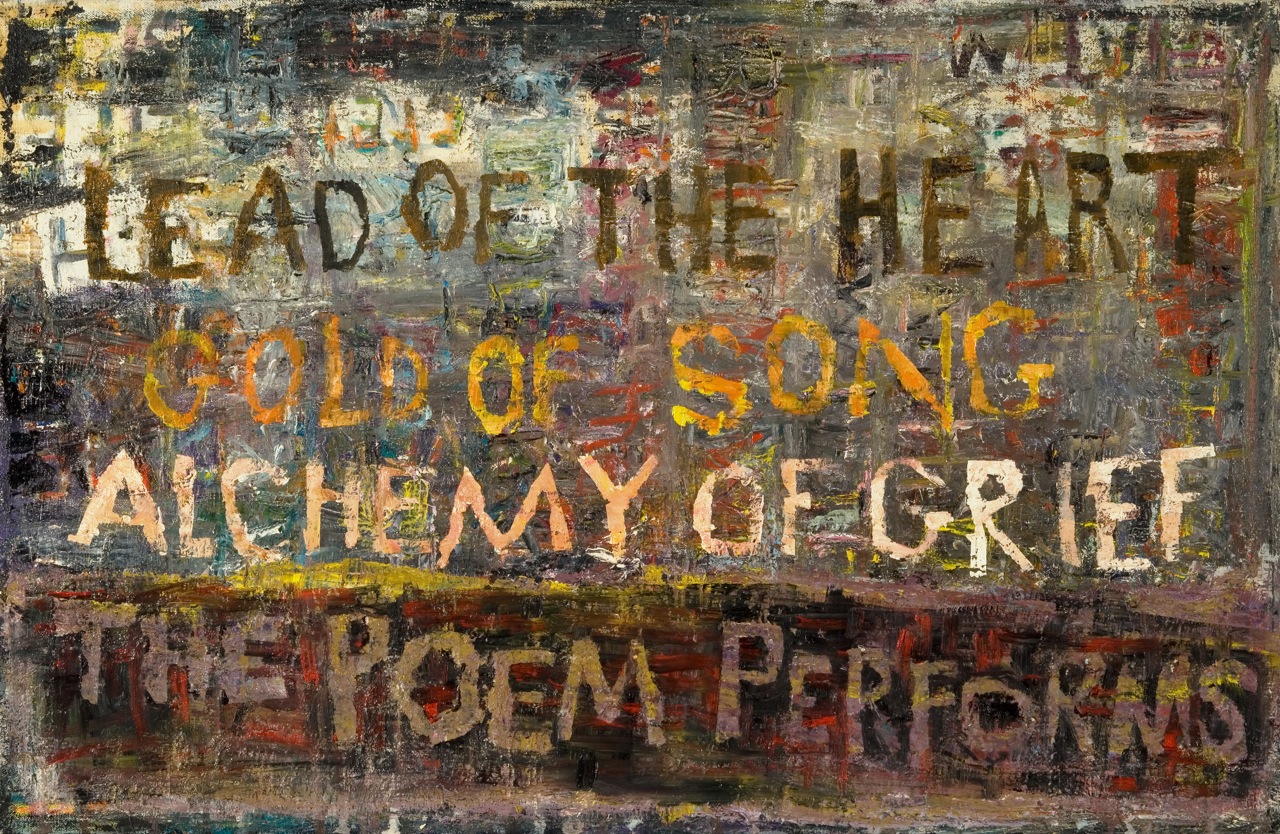 LEAD OF THE HEART
GOLD OF SONG
ALCHEMY OF GRIEF
THE POEM PERFORMS